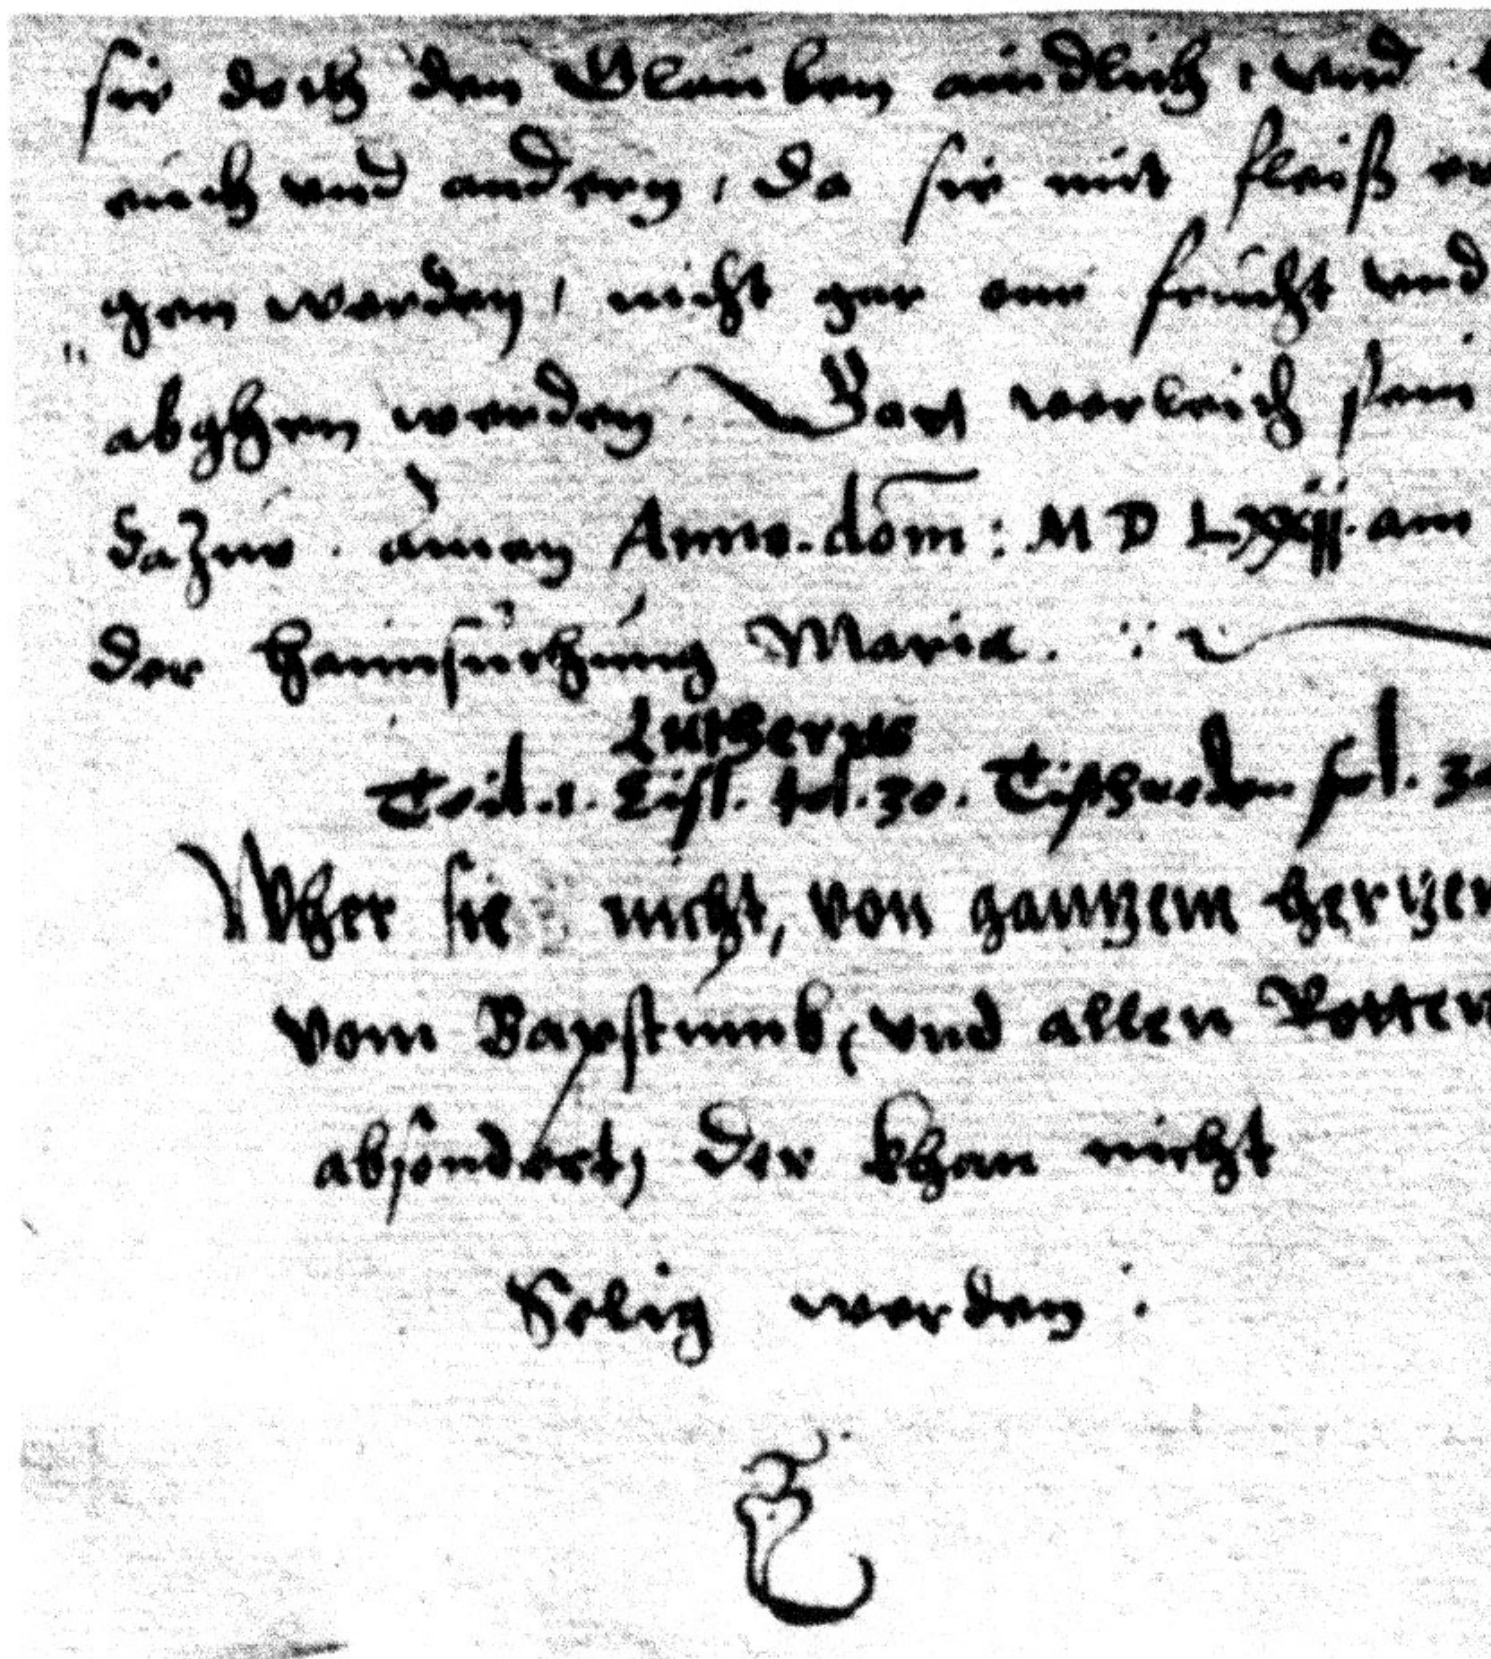 sie doch den Glauben aindlich, vnd
euch vnd andern, da sie mit fleiß
gen werden, nicht gar one frücht vnd
abghen werden verleich sein
dazue. amen Anno. dom̄: MDLXXiij. am
der haimsuchung Maria.
Lutherus
Teil. 1. Eisl. fol. 30. Tischreden fol.
Wher sie nicht, von gantzem hertzen
vom Bapstumb, vnd allen Rotten
absondert, der khan nicht
Selig werden.